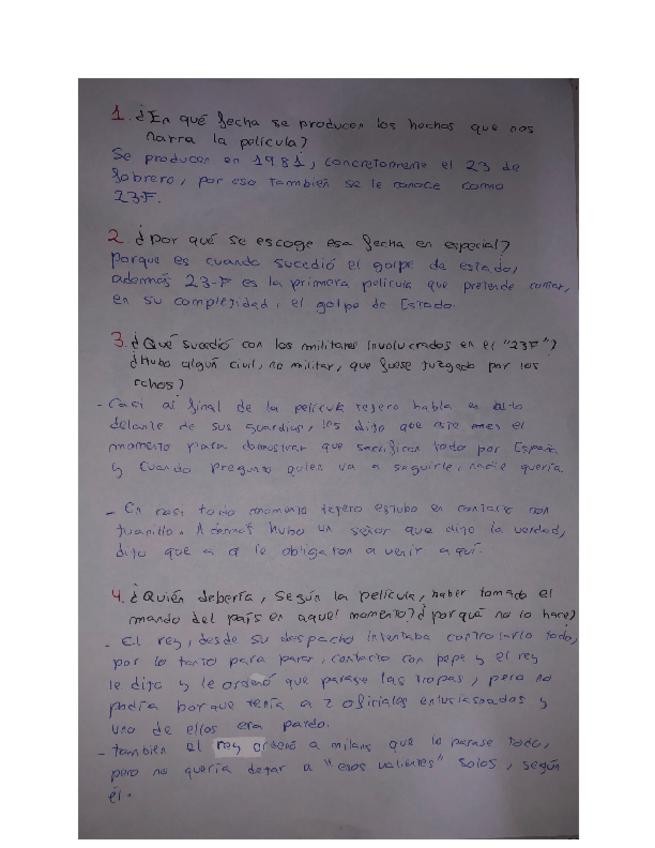 1. ¿En qué fecha se producen los hechos que nos
narra la película?
Se producen en 1981, concretamente el 23 de
febrero, por eso también se le conoce como
23-F.
2. ¿Por qué se escoge esa fecha en especial?
Porque es cuando sucedió el golpe de estado,
además 23-F es la primera película que pretende contar,
en su complejidad, el golpe de Estado.
3. ¿Qué sucedió con los militares involucrados en el "23F"?
¿Hubo algún civil, no militar, que fuese juzgado por los
echos?
- Casi al final de la película tejero habla en alto
delante de sus guardias, les dijo que era el
momento para demostrar que sacrifican todo por España
y cuando pregunto quien va a seguirle, nadie quería
- En casi todo momento tejero estubo en contacto con
juanillo. Además hubo un señor que dijo la verdad,
dijo que a él le obligaron a venir aquí.
4. ¿Quién debería, según la película, haber tomado el
mando del país en aquel momento? ¿por qué no lo hace?
- El rey, desde su despacho intentaba controlarlo todo,
por lo tanto para parar, contacto con pepe y el rey
le dijo y le ordenó que parase las tropas, pero no
podía porque tenía a 2 oficiales entusiasmados y
uno de ellos era pardo.
- también el rey ordenó a milans que lo parase todo,
pero no quería dejar a "esos valientes" solos, según
él.